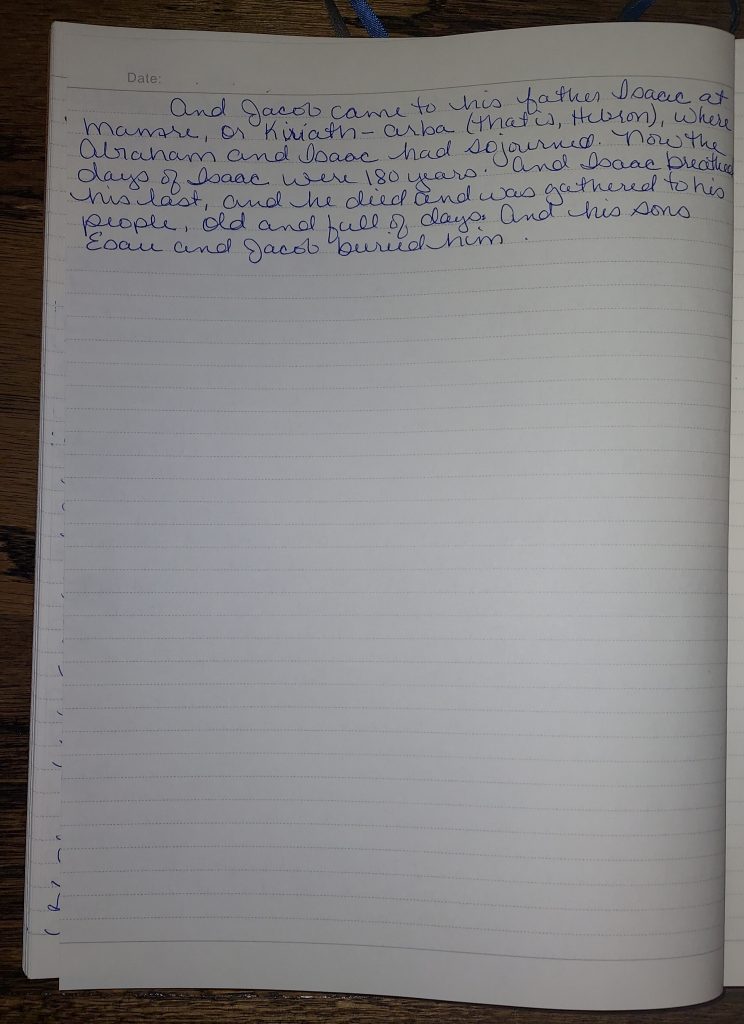 Date:
And Jacob came to his father Isaac at
Mamre, or Kiriath-arba (that is, Hebron), where
Abraham and Isaac had sojourned. Now the
days of Isaac were 180 years. And Isaac breathed
his last, and he died and was gathered to his
people, old and full of days. And his sons
Esau and Jacob buried him.